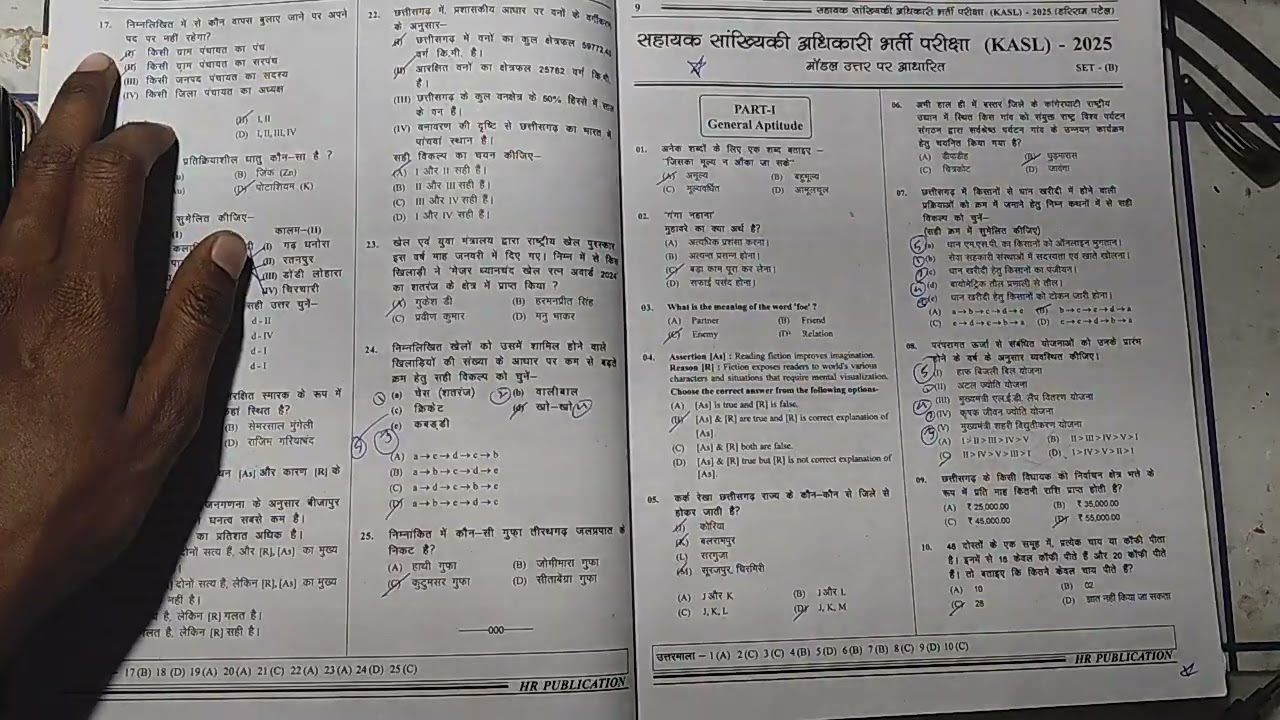 17. निम्नलिखित में से कौन वापस बुलाए जाने पर अपने
पद पर नहीं रहेगा?
(I) किसी ग्राम पंचायत का पंच
(II) किसी ग्राम पंचायत का सरपंच
(III) किसी जनपद पंचायत का सदस्य
(IV) किसी जिला पंचायत का अध्यक्ष
I, II
(D) I, II, III, IV
प्रतिक्रियाशील धातु कौन-सा है ?
(B) जिंक (Zn)
(D) पोटाशियम (K)
सुमेलित कीजिए–
कालम–(II)
(I) गढ़ धनोरा
(II) रतनपुर
(III) डोंडी लोहारा
(IV) चिरचारी
सही उत्तर चुनें–
d - II
d - IV
d - I
d - I
स्मारक के रूप में
स्थित है?
(B) सेमरसाल मुंगेली
(D) राजिम गरियाबंद
[As] और कारण [R] के
जनगणना के अनुसार बीजापुर
घनत्व सबसे कम है।
का प्रतिशत अधिक है।
दोनों सत्य हैं, और [R], [As] का मुख्य
दोनों सत्य है, लेकिन [R], [As] का मुख्य
नहीं है।
है, लेकिन [R] गलत है।
गलत है, लेकिन [R] सही है।
17 (B) 18 (D) 19 (A) 20 (A) 21 (C) 22 (A) 23 (A) 24 (D) 25 (C)
22. छत्तीसगढ़ में, प्रशासकीय आधार पर वनों के वर्गीकरण
के अनुसार–
(I) छत्तीसगढ़ में वनों का कुल क्षेत्रफल 59772.
वर्ग कि.मी. है।
(II) आरक्षित वनों का क्षेत्रफल 25782 वर्ग कि.मी.
है।
(III) छत्तीसगढ़ के कुल वनक्षेत्र के 50% हिस्से में साल
के वन हैं।
(IV) वनावरण की दृष्टि से छत्तीसगढ़ का भारत में
पांचवां स्थान है।
सही विकल्प का चयन कीजिए–
(A) I और II सही हैं।
(B) II और III सही हैं।
(C) III और IV सही हैं।
(D) I और IV सही हैं।
23. खेल एवं युवा मंत्रालय द्वारा राष्ट्रीय खेल पुरस्कार
इस वर्ष माह जनवरी में दिए गए। निम्न में से किस
खिलाड़ी ने 'मेजर ध्यानचंद खेल रत्न अवार्ड 2024
का शतरंज के क्षेत्र में प्राप्त किया ?
(A) गुकेश डी (B) हरमनप्रीत सिंह
(C) प्रवीण कुमार (D) मनु भाकर
24. निम्नलिखित खेलों को उसमें शामिल होने वाले
खिलाड़ियों की संख्या के आधार पर कम से बढ़ते
क्रम हेतु सही विकल्प को चुनें–
(a) चेस (शतरंज) (b) वालीबाल
(c) क्रिकेट (d) खो-खो
(e) कबड्डी
(A) a→e→d→c→b
(B) a→b→c→d→e
(C) a→d→c→b→e
(D) a→b→e→d→c
25. निम्नांकित में कौन-सी गुफा तीरथगढ़ जलप्रपात के
निकट है?
(A) हाथी गुफा (B) जोगीमारा गुफा
(C) कुटुमसर गुफा (D) सीताबेंग्रा गुफा
000
HR PUBLICATION
9
सहायक सांख्यिकी अधिकारी भर्ती परीक्षा (KASL) - 2025 (हरिराम पटेल)
सहायक सांख्यिकी अधिकारी भर्ती परीक्षा (KASL) - 2025
मॉडल उत्तर पर आधारित
SET - (B)
PART-I
General Aptitude
01. अनेक शब्दों के लिए एक शब्द बताइए –
"जिसका मूल्य न आँका जा सके"
(A) अमूल्य (B) बहुमूल्य
(C) मूल्यवर्धित (D) आमूलचूल
02. 'गंगा नहाना'
मुहावरे का क्या अर्थ है?
(A) अत्यधिक प्रशंसा करना।
(B) अत्यन्त प्रसन्न होना।
(C) बड़ा काम पूरा कर लेना।
(D) सफाई पसंद होना।
03. What is the meaning of the word 'foe' ?
(A) Partner (B) Friend
(C) Enemy (D) Relation
04. Assertion [As] : Reading fiction improves imagination.
Reason [R] : Fiction exposes readers to world's various
characters and situations that require mental visualization.
Choose the correct answer from the following options-
(A) [As] is true and [R] is false.
(B) [As] & [R] are true and [R] is correct explanation of
[As].
(C) [As] & [R] both are false.
(D) [As] & [R] true but [R] is not correct explanation of
[As].
05. कर्क रेखा छत्तीसगढ़ राज्य के कौन-कौन से जिले से
होकर जाती है?
(J) कोरिया
(K) बलरामपुर
(L) सरगुजा
(M) सूरजपुर, चिरमिरी
(A) J और K (B) J और L
(C) J, K, L (D) J, K, M
06. अभी हाल ही में बस्तर जिले के कांगेरघाटी राष्ट्रीय
उद्यान में स्थित किस गांव को संयुक्त राष्ट्र विश्व पर्यटन
संगठन द्वारा सर्वश्रेष्ठ पर्यटन गांव के उन्नयन कार्यक्रम
हेतु चयनित किया गया है?
(A) डीपाडीह (B) धुड़मारास
(C) चित्रकोट (D) जावंगा
07. छत्तीसगढ़ में किसानों से धान खरीदी में होने वाली
प्रक्रियाओं को क्रम में जमाने हेतु निम्न कथनों में से सही
विकल्प को चुनें–
(सही क्रम में सुमेलित कीजिए)
(a) धान एम.एस.पी. का किसानों को ऑनलाइन भुगतान।
(b) सेवा सहकारी संस्थाओं में सदस्यता एवं खाते खोलना।
(c) धान खरीदी हेतु किसानों का पंजीयन।
(d) बायोमेट्रिक तौल प्रणाली से तौल।
(e) धान खरीदी हेतु किसानों को टोकन जारी होना।
(A) a→b→c→d→e (B) b→c→e→d→a
(C) e→d→c→b→a (D) c→e→d→b→a
08. परंपरागत ऊर्जा से संबंधित योजनाओं को उनके प्रारंभ
होने के वर्ष के अनुसार व्यवस्थित कीजिए।
(I) हाफ बिजली बिल योजना
(II) अटल ज्योति योजना
(III) मुख्यमंत्री एल.ई.डी. लैंप वितरण योजना
(IV) कृषक जीवन ज्योति योजना
(V) मुख्यमंत्री शहरी विद्युतीकरण योजना
(A) I>II>III>IV>V (B) II>III>IV>V>I
(C) II>IV>V>III>I (D) I>IV>V>II>I
09. छत्तीसगढ़ के किसी विधायक को निर्वाचन क्षेत्र भत्ते के
रूप में प्रति माह कितनी राशि प्राप्त होती है?
(A) ₹ 25,000.00 (B) ₹ 35,000.00
(C) ₹ 45,000.00 (D) ₹ 55,000.00
10. 48 दोस्तों के एक समूह में, प्रत्येक चाय या कॉफी पीता
है। इनमें से 18 केवल कॉफी पीते हैं और 20 कॉफी पीते
हैं। तो बताइए कि कितने केवल चाय पीते हैं?
(A) 10 (B) 02
(C) 28 (D) ज्ञात नहीं किया जा सकता
उत्तरमाला – 1 (A) 2 (C) 3 (C) 4 (B) 5 (D) 6 (B) 7 (B) 8 (C) 9 (D) 10 (C)
HR PUBLICATION